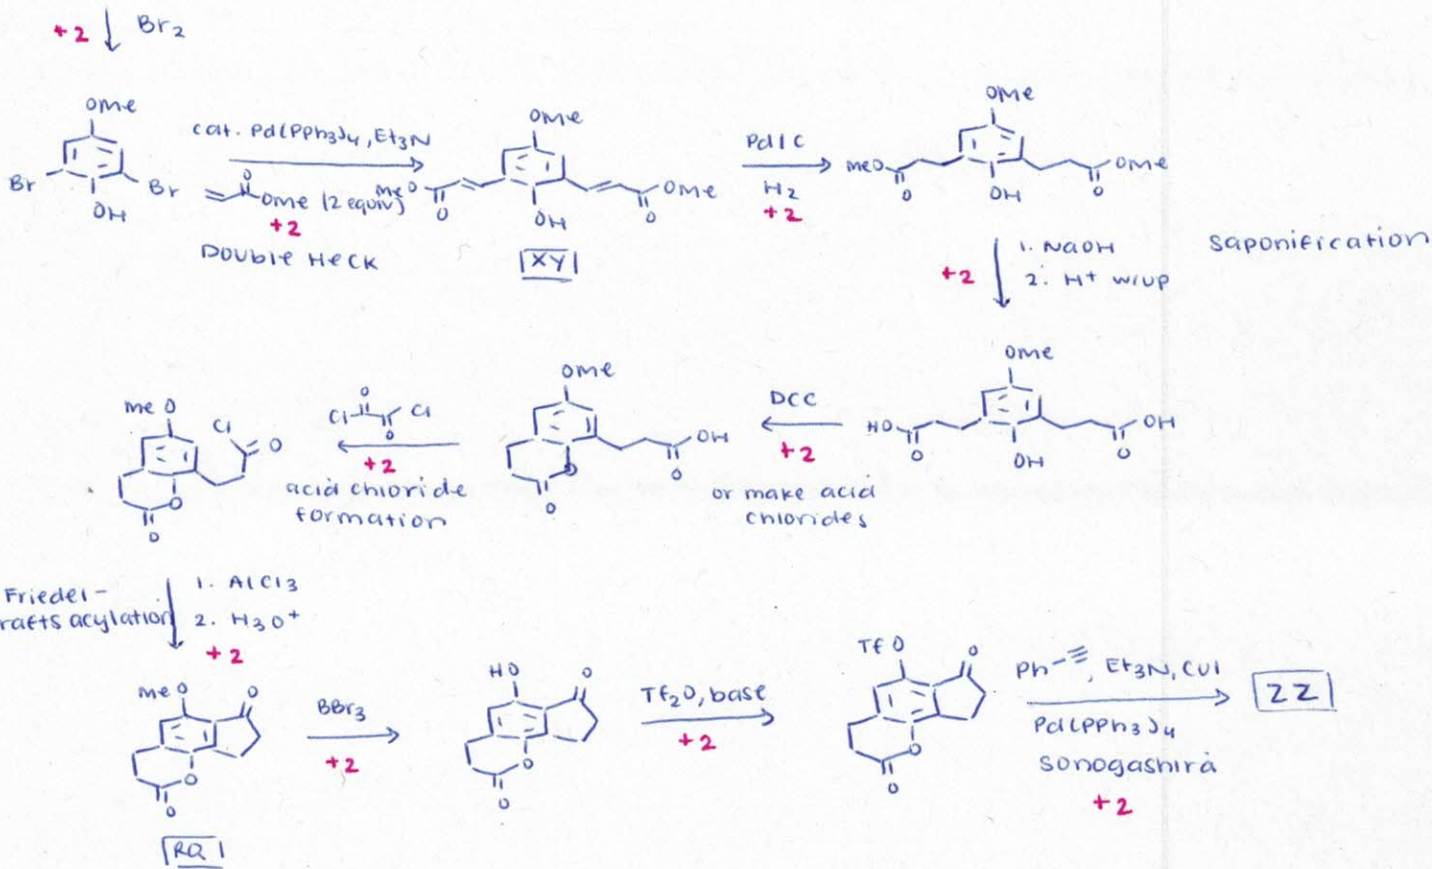 +2 Br2
OMe
Br Br
OH
cat. Pd(PPh3)4, Et3N
O
OMe (2 equiv)
+2
Double Heck
OMe
MeO OMe
O O
OH
XY
Pd/C
H2
+2
OMe
MeO OMe
O O
OH
+2
1. NaOH
2. H+ w/up
saponification
OMe
HO OH
O O
OH
DCC
+2
or make acid
chlorides
OMe
OH
O
O
O
O
Cl Cl
O
+2
acid chloride
formation
MeO
Cl
O
O
O
Friedel-
rafts acylation
1. AlCl3
2. H3O+
+2
MeO O
O
O
RQ
BBr3
+2
HO O
O
O
Tf2O, base
+2
TfO O
O
O
Ph , Et3N, CuI
Pd(PPh3)4
sonogashira
+2
ZZ